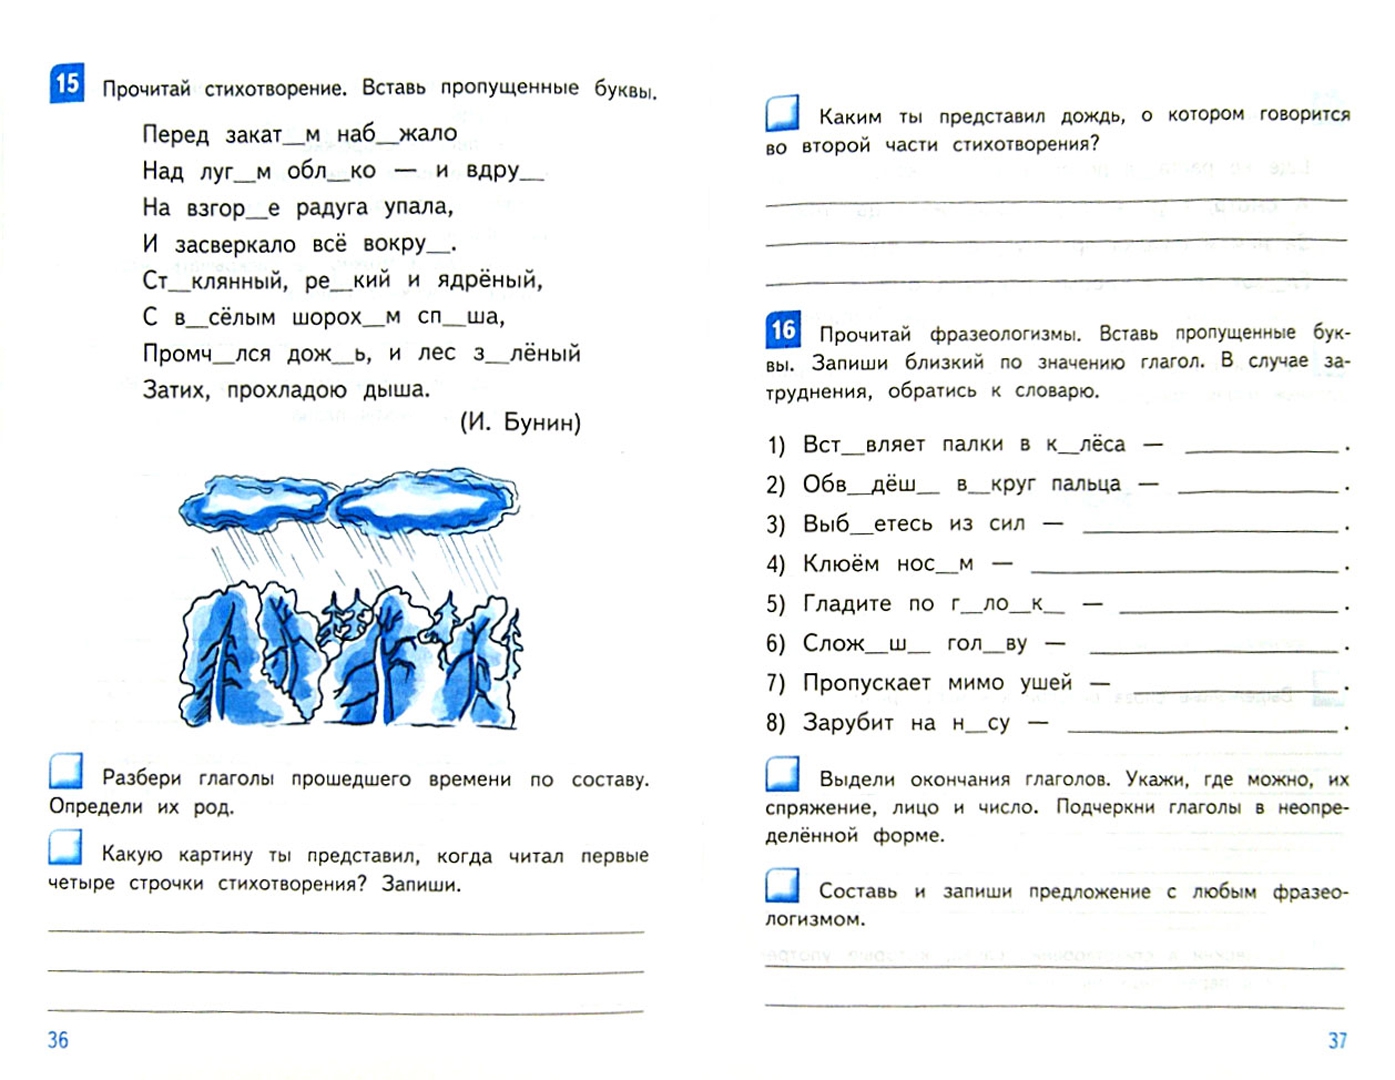 15 Прочитай стихотворение. Вставь пропущенные буквы.
Перед закат__м наб__жало
Над луг__м обл__ко — и вдру__
На взгор__е радуга упала,
И засверкало всё вокру__.
Ст__клянный, ре__кий и ядрёный,
С в__сёлым шорох__м сп__ша,
Промч__лся дож__ь, и лес з__лёный
Затих, прохладою дыша.
(И. Бунин)
Разбери глаголы прошедшего времени по составу.
Определи их род.
Какую картину ты представил, когда читал первые
четыре строчки стихотворения? Запиши.
36
Каким ты представил дождь, о котором говорится
во второй части стихотворения?
16 Прочитай фразеологизмы. Вставь пропущенные бук-
вы. Запиши близкий по значению глагол. В случае за-
труднения, обратись к словарю.
1) Вст__вляет палки в к__лёса — ____________.
2) Обв__дёш__ в__круг пальца — ____________.
3) Выб__етесь из сил — ____________________.
4) Клюём нос__м — ________________________.
5) Гладите по г__ло__к__ — _________________.
6) Слож__ш__ гол__ву — ____________________.
7) Пропускает мимо ушей — ________________.
8) Зарубит на н__су — _____________________.
Выдели окончания глаголов. Укажи, где можно, их
спряжение, лицо и число. Подчеркни глаголы в неопре-
делённой форме.
Составь и запиши предложение с любым фразео-
логизмом.
37